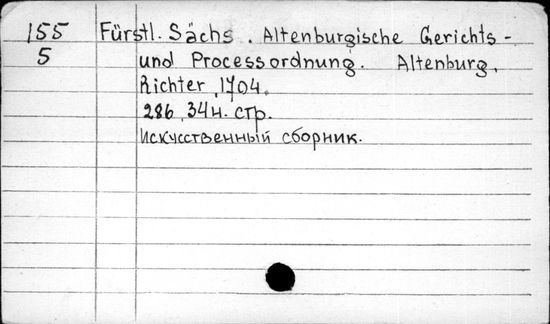 155 Fürstl. Sächs. Altenburgische Gerichts-
5 und Processordnung. Altenburg,
Richter, 1704.
286, 34 н. стр.
Искусственный сборник.